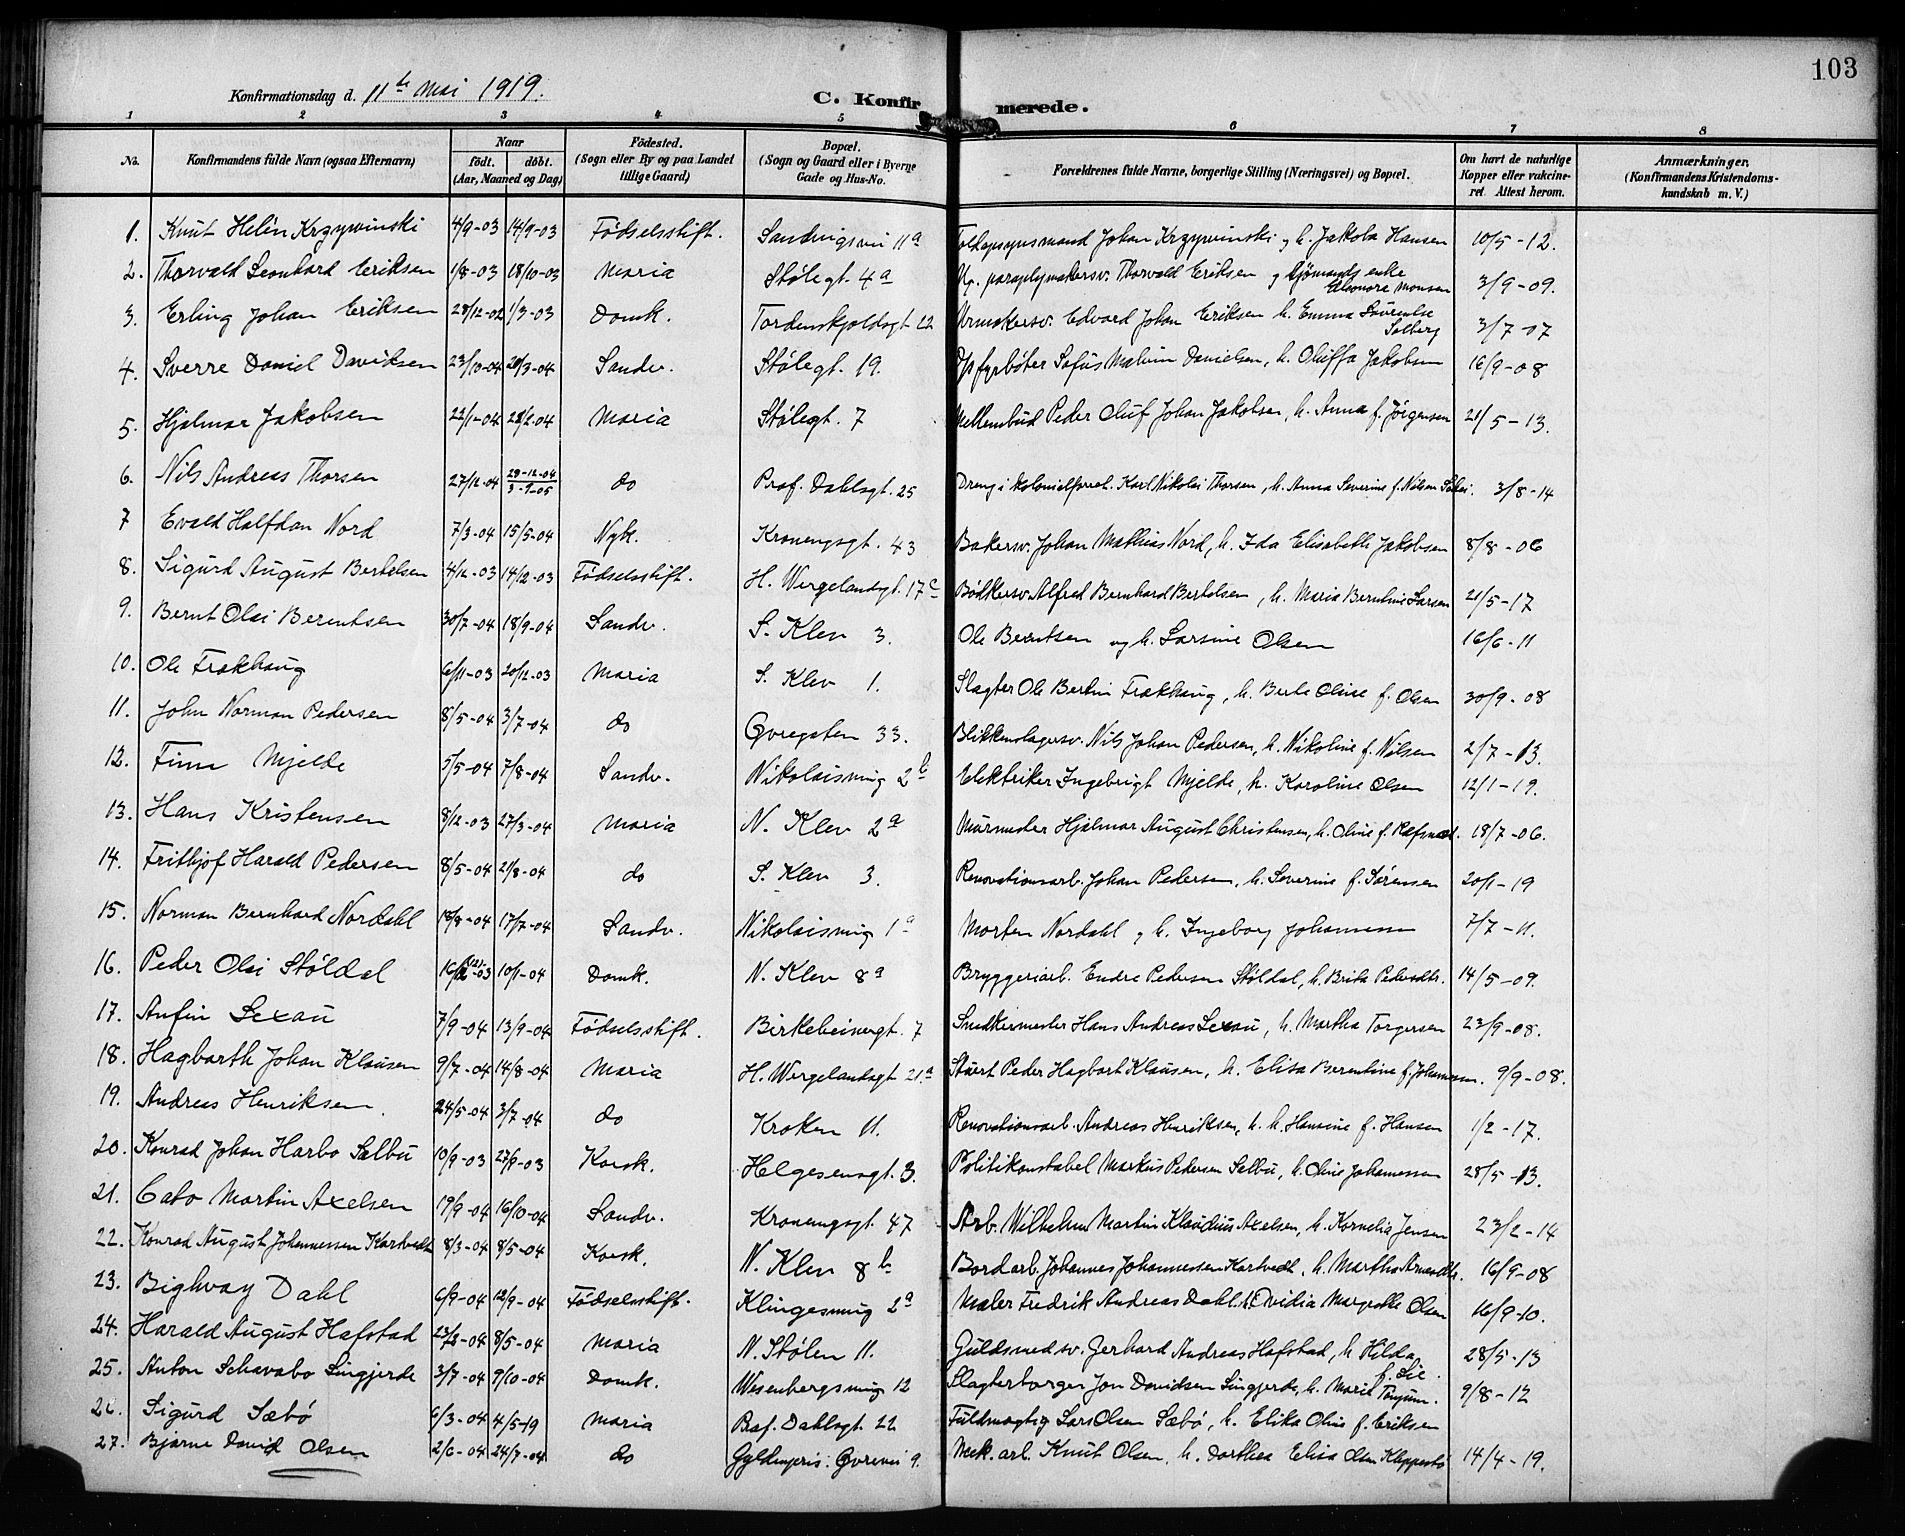 103
Konfirmationsdag d. 11te Mai 1919.
C. Konfirmerede.
1 2 3 4 5 6 7 8
No. Konfirmandens fulde Navn (ogsaa Efternavn) Naar födt. döbt. (Aar, Maaned og Dag) Födested. (Sogn eller By og paa Landet tillige Gaard) Bopæl. (Sogn og Gaard eller i Byerne Gade og Hus-No. Forældrenes fulde Navne, borgerlige Stilling (Næringsvei) og Bopæl. Om havt de naturlige Kopper eller vakcineret. Attest herom. Anmærkninger, (Konfirmandens Kristendomskundskab m. V.)
1. Knut Helén Krzywinski 4/9-03 14/9-03 Födselsstift. Sandvigsvei 11a Toldopsynsmand Johan Krzywinski og h. Jakoba Hansen 10/5-12.
2. Thorvald Leonhard Eriksen 1/8-03 18/10-03 Maria Stölegt. 4a Ug. paraplymakersv. Thorvald Eriksen og sjömands enke Eleonora Monsen 3/9-09.
3. Erling Johan Eriksen 28/12-02 1/3-03 Domk. Tordenskjoldsgt 22 Urmakersv. Edvard Johan Eriksen h. Emma Laurentse Solberg 3/7-07
4. Sverre Daniel Davidsen 23/10-04 20/3-04 Sandv. Stölegt. 19. Fyrböter Sofus Malvin Danielsen, h. Oluffa Jakobsen 16/9-08
5. Hjalmar Jakobsen 22/1-04 28/2-04 Maria Stölegt. 7 Mellembud Peder Oluf Johan Jakobsen, h. Anna f. Jörgensen 21/5-13.
6. Nils Andreas Thorsen 27/12-04 29-12-04 3-9-05 do Prof. Dahlsgt. 25 Dreng i kolonialforret. Karl Nikolai Thorsen, h. Anna Severine f. Nilsen 3/8-14
7 Evald Halfdan Nord 7/3-04 15/5-04 Nyk. Kronengsgt. 43 Bakersv. Johan Mathias Nord, h. Ida Elisabeth Jakobsen 8/8-06
8. Sigurd August Bertelsen 4/12-03 14/12-03 Födselsstift. H. Wergelandsgt. 17c Bödkersv. Alfred Bernhard Bertelsen, h. Maria Berntine Larsen 21/5-17
9. Bernt Olai Berentsen 30/7-04 18/9-04 Sandv. S. Klev 3. Ole Berntsen og h. Larsine Olsen 16/6-11
10. Ole Trækhaug 6/11-03 20/12-03 Maria S. Klev 1. Slagter Ole Bertin Trækhaug, h. Berte Oline f. Olsen 30/9-08
11. John Norman Pedersen 8/5-04 3/7-04 do Övregaten 33. Blikkenslagersv. Nils Johan Pedersen, h. Nikoline f. Nilsen 2/7-13.
12. Finn Mjelde 5/5-04 7/8-04 Sandv. Nikolaismug 2b Elektriker Ingebrigt Mjelde, h. Karoline Olsen 12/1-19.
13. Hans Kristensen 8/12-03 27/3-04 Maria N. Klev 2a Murmester Hjalmar August Christensen, h. Oline f. Refsnæs. 18/7-06.
14. Frithjof Harald Pedersen 8/5-04 21/8-04 do S. Klev 3. Renovationsarb. Johan Pedersen, h. Severine f. Sörensen 20/1-19
15. Norman Bernhard Nordahl 18/8-04 17/7-04 Sandv. Nikolaismug 1a Morten Nordahl og h. Ingeborg Johannessen 7/7-11.
16. Peder Olai Stöldal 16/12-03 10/1-04 Domk. N. Klev 8a Bryggeriarb. Endre Pedersen Stöldal, h. Brita Pedersdtr. 14/5-09.
17. Anfin Sexau 7/9-04 13/9-04 Födselsstift. Birkebeinergt. 7 Snedkermester Hans Andreas Sexau, h. Martha Torgersen 23/9-08.
18. Hagbarth Johan Klausen 9/7-04 14/8-04 Maria H. Wergelandsgt 21.a Stuert Peder Hagbart Klausen, h. Elisa Berentine f. Johannessen. 9/9-08.
19. Andreas Henriksen. 24/5-04 3/7-04 do Kroken 11. Renovationsarb. Andreas Henriksen, h. h. Hansine f. Hansen 1/2-17.
20. Konrad Johan Harbo Selbu 10/9-03 27/9-03 Korsk. Helgesensgt. 3. Politikonstabel Markus Pedersen Selbu, h. Oline Johannessen 28/5-13.
21. Cato Martin Axelsen 19/9-04 16/10-04 Sandv. Kronengsgt. 47 Arb. Wilhelm Martin Klaudius Axelsen, h. Kornelia Jensen 23/2-14
22. Konrad August Johannessen Kartvedt 8/3-04 8/5-04 Korsk. N. Klev 8b Bordarb. Johannes Johannessen Kartvedt, h. Martha Arnesdtr. 16/9-08
23. Bighvay Dahl 6/9-04 12/9-04 Födselsstift. Klingesmug 2a Maler Fredrik Andreas Dahl. h. Ovidia Margrethe Olsen 16/9-10.
24. Harald August Hafstad 23/2-04 8/5-04 Maria N. Stölen 11. Guldsmedsv. Gerhard Andreas Hafstad, h. Hilda f. Lie. 28/5-13
25. Anton Schwabo Lingjerde 3/7-04 9/10-04 Domk. Wesenbergsmug 12 Slagterborger Jon Davidsen Lingjerde, h. Marit Tonjum. 9/8-12
26. Sigurd Sæbö 6/3-04 4/5-19 Maria Prof. Dahlsgt 22 Fuldmægtig Lars Olsen Sæbö, h. Elika Oline f. Eriksen
27. Bjarne David Olsen 2/6-04 24/7-04 do Gyldenpris: Övrevei 9. Mek. arb. Knut Olsen, h. Dorthea Elisa Olsen Kleppestö 14/4-19.